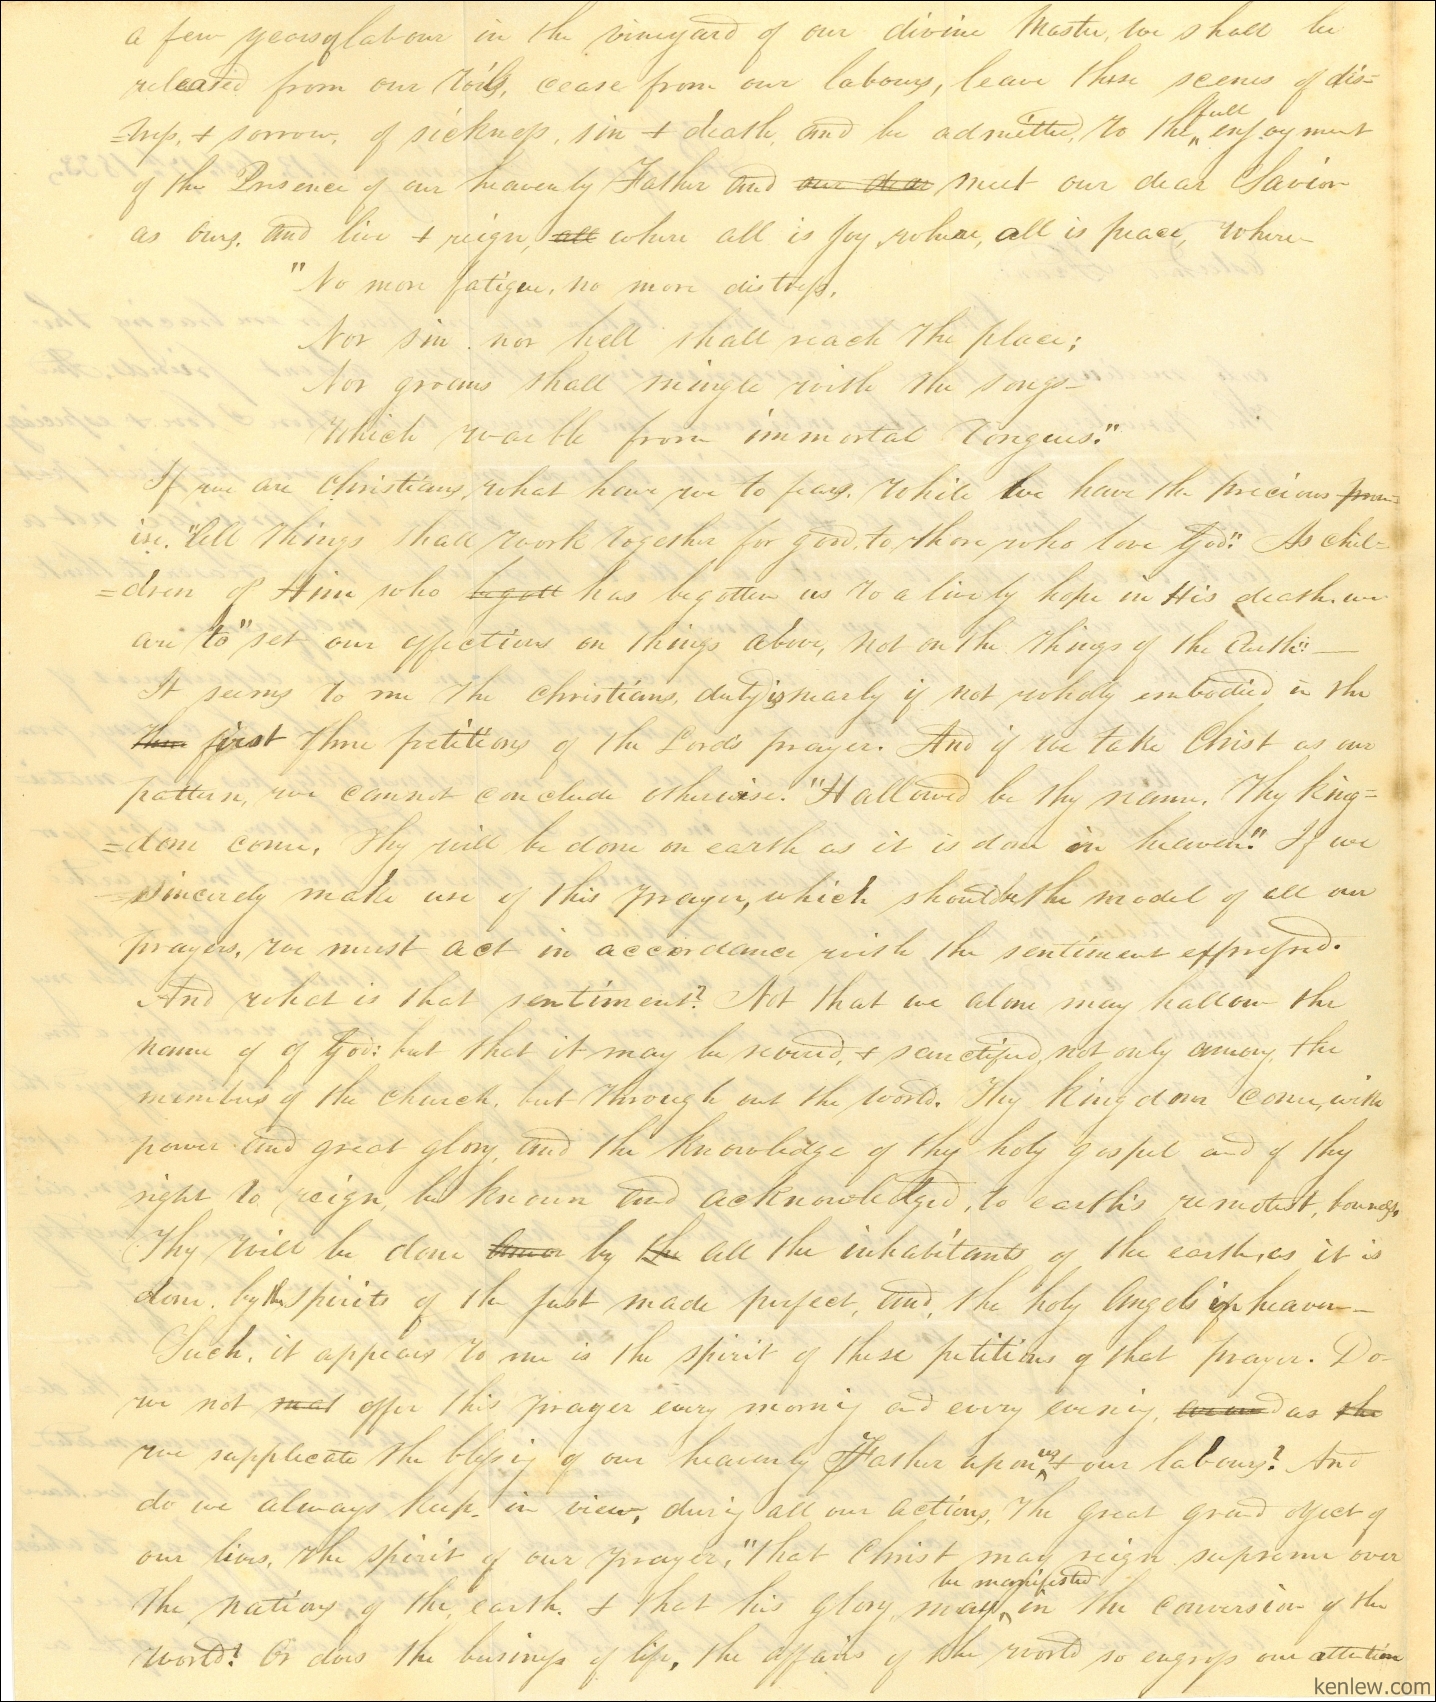 a few years of labour in the vineyard of our divine Master, we shall be
released from our toils, cease from our labours, leave these scenes of dis=
=tress, + sorrow, of sickness, sin + death, and be admitted, to the full enjoyment
of the Presence of our heavenly Father and our dear meet our dear Savior
as ours, and live + reign, all where all is joy, where, all is peace, where
"No more fatigue, no more distress,
Nor sin nor hell shall reach the place;
Nor groans shall mingle with the songs
Which warble from immortal tongues."
If we are Christians, what have we to fear, While we have the precious prom=
ise. "All things shall work together for good, to those who love God." As chil=
=dren of Him who begott has begotten us to a lively hope in His death, we
are to "set our affections on things above, not on the things of the earth".
It seems to me the christians, duty is nearly if not wholy embodied in the
first three petitions of the Lord's prayer. And if we take Christ as our
pattern, we cannot conclude otherwise. "Hallowed be thy name. Thy King=
=dom come, Thy will be done on earth as it is done in heaven." If we
sincerely make use of this prayer, which should be the model of all our
prayers, we must act in accordance with the sentiment expressed.
And what is that sentiment? Not that we alone may hallow the
name of of God: but that it may be revered, + sanctified, not only among the
members of the church, but through out the world. Thy Kingdom come, with
power and great glory, and the knowledge of thy holy gospel and of thy
right to reign, be known and acknowledged, to earth's remotest, bounds,
Thy will be done by the all the inhabitants of the earth, as it is
done, by the spirits of the just made perfect, and, the holy Angels in heaven—
Such, it appears to me is the spirit of these petitions of that prayer. Do
we not offer this prayer every morning and every evening, as the
we supplicate the blessing of our heavenly Father upon us + our labours? And
do we always keep in view, during all our actions, The great grand object of
our lives, the spirit of our prayer, "that Christ may reign supreme over
the nations of the earth, + that his glory may be manifested in the conversion of the
world? Or does the business of life, the affairs of the world so engross our attention
kenlew.com